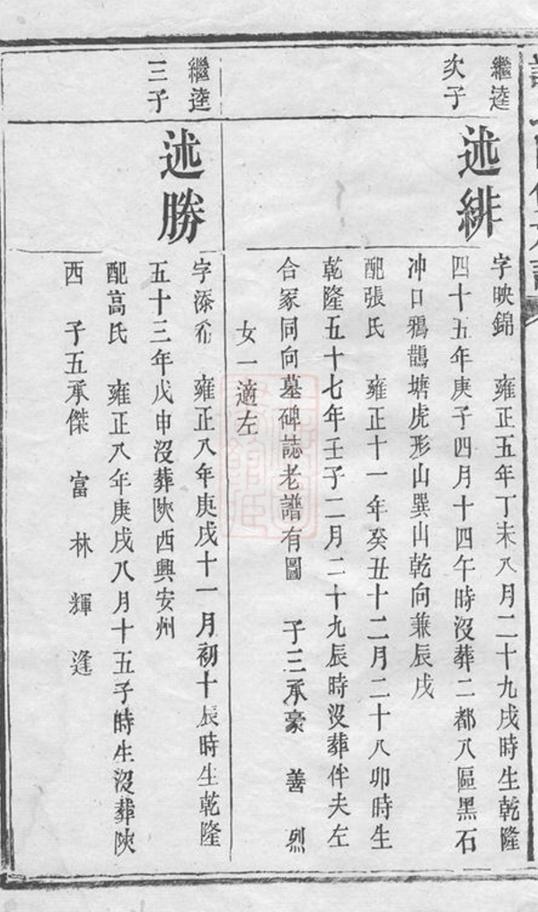 繼逵
次子
述緋
字映錦 雍正五年丁未八月二十九戌時生乾隆
四十五年庚子四月十四午時沒葬二都八區黑石
冲口鴉鵲塘虎形山巽山乾向兼辰戌
配張氏 雍正十一年癸丑十二月二十八卯時生
乾隆五十七年壬子二月二十九辰時沒葬伴夫左
合冢同向墓碑誌老譜有圖 子三承豪 善 烈
女一適左
繼逵
三子
述勝
字添希 雍正八年庚戌十一月初十辰時生乾隆
五十三年戊申沒葬陝西興安州
配高氏 雍正八年庚戌八月十五子時生沒葬陝
西 子五承傑 富 林 輝 逢